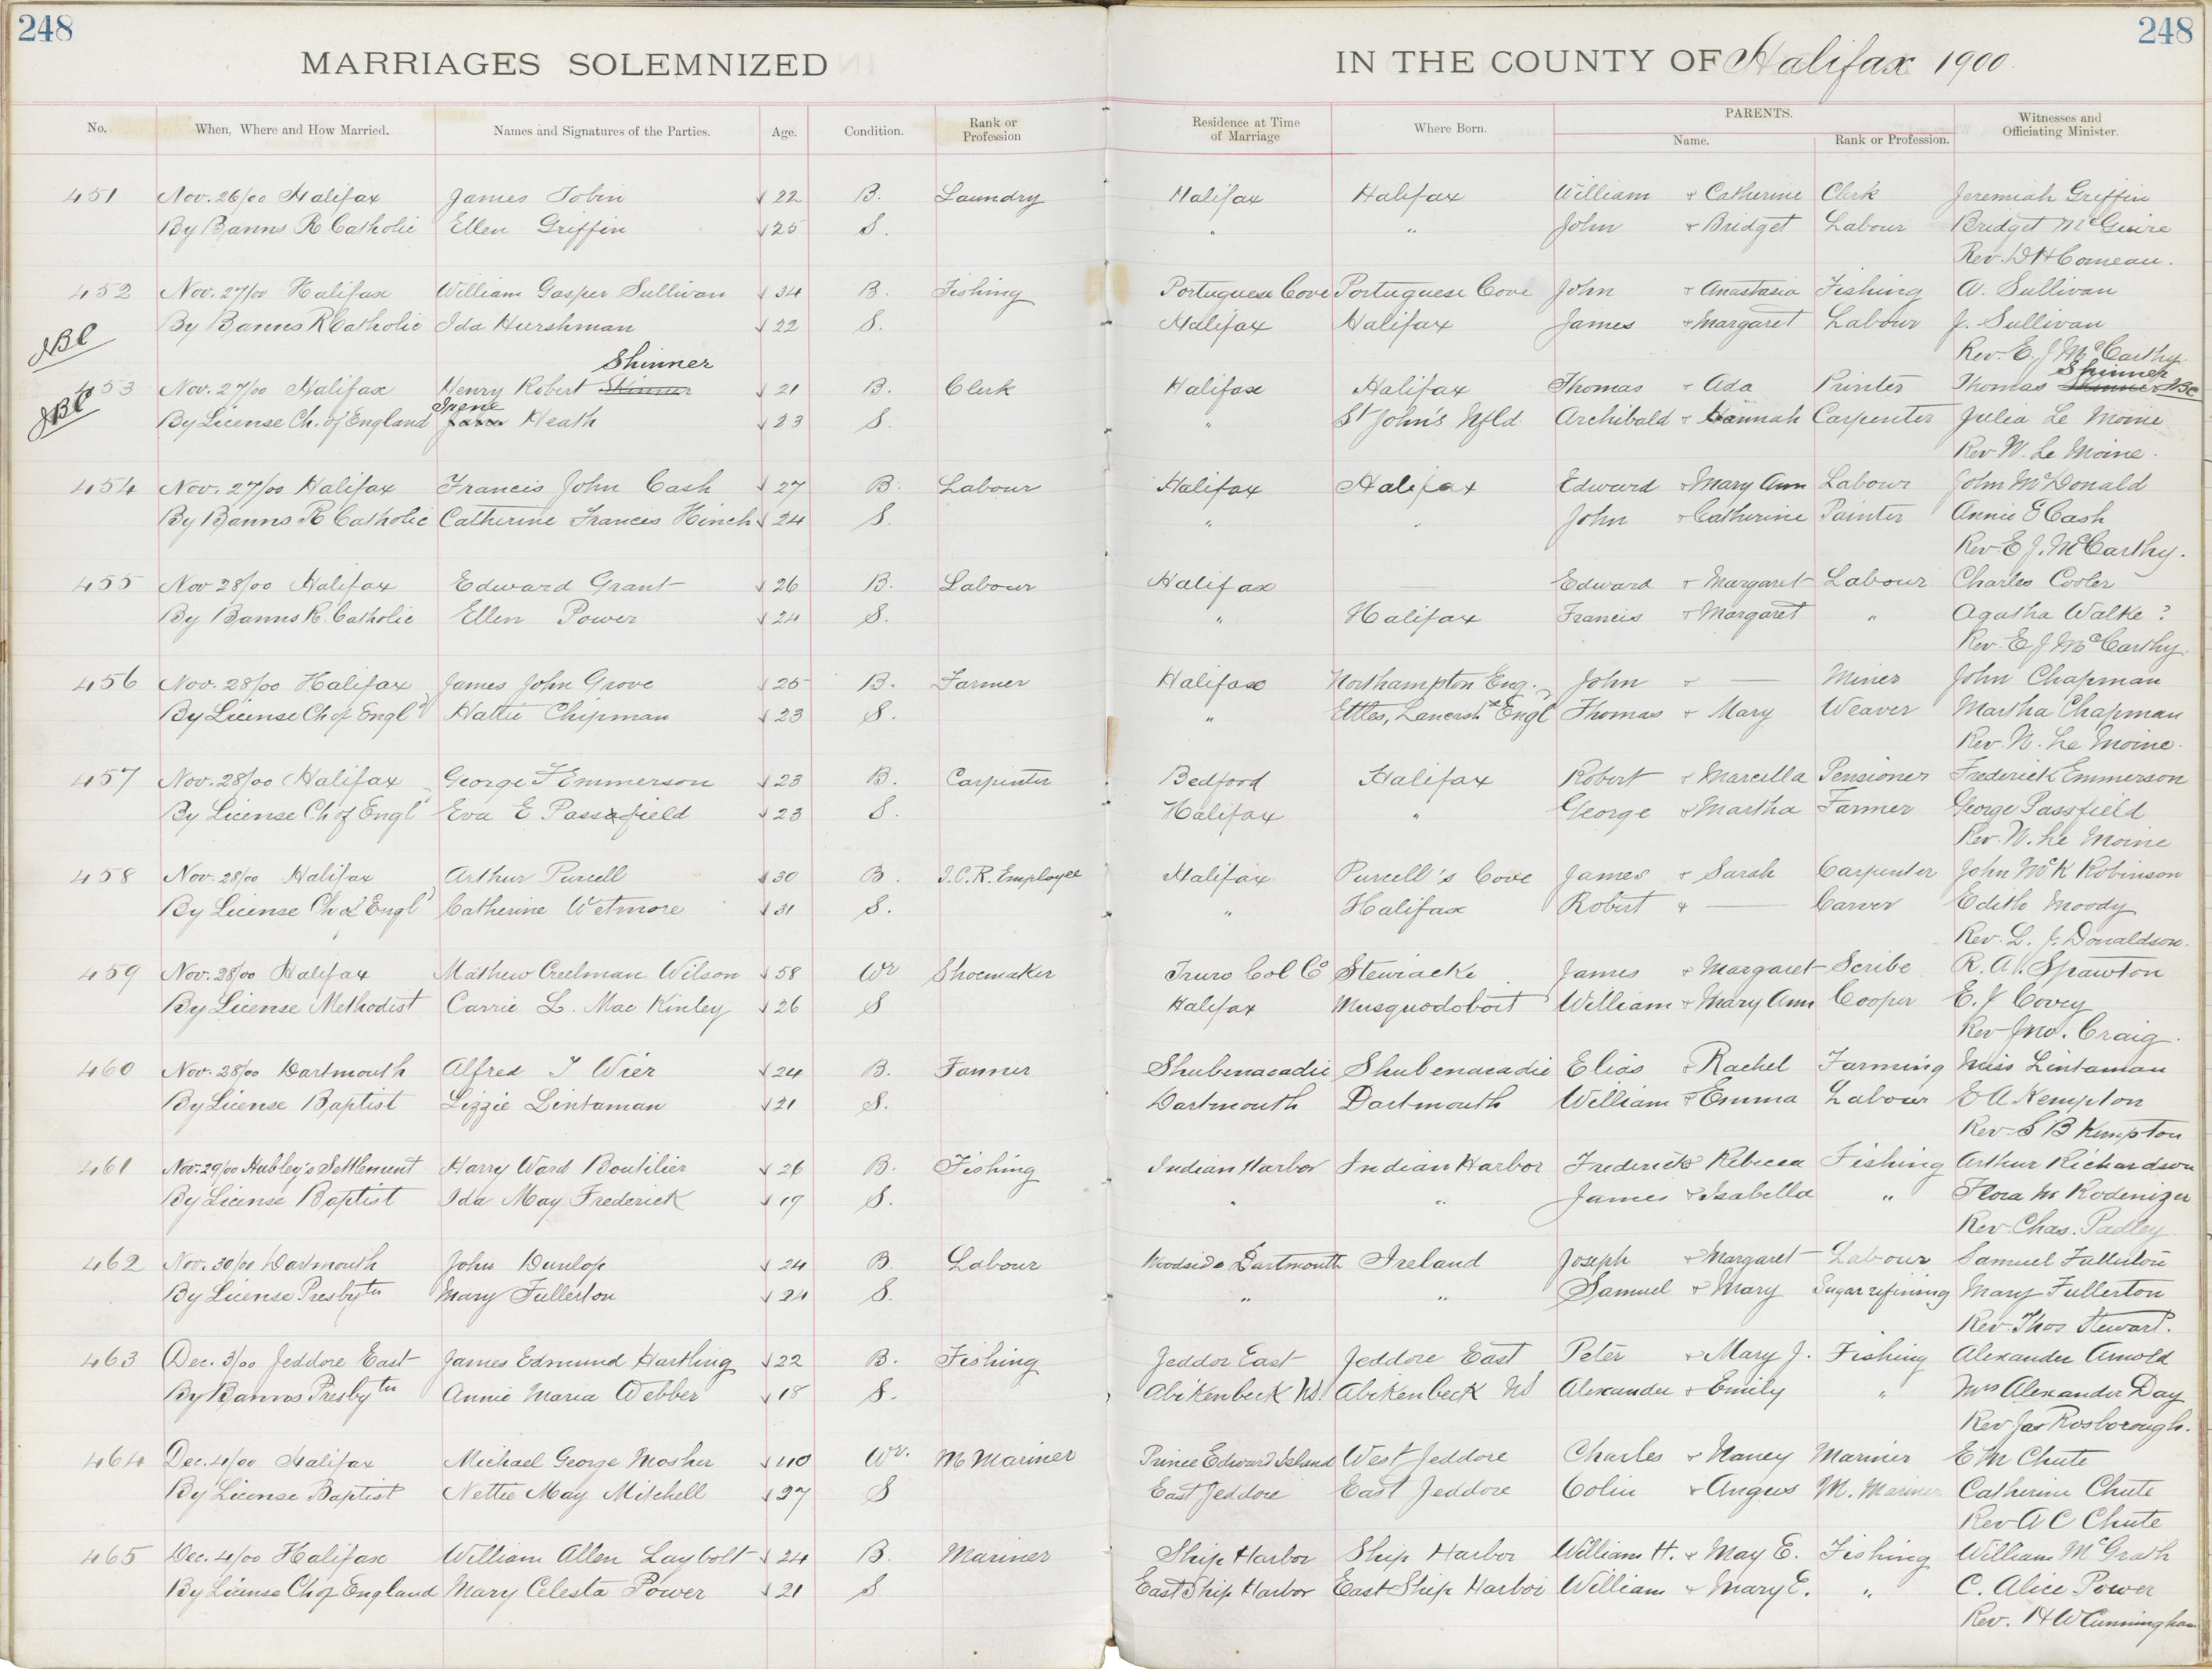 248
248
MARRIAGES SOLEMNIZED IN THE COUNTY OF Halifax 1900
No. When, Where and How Married. Names and Signatures of the Parties. Age. Condition. Rank or Profession Residence at Time of Marriage Where Born. PARENTS. Name. Rank or Profession. Witnesses and Officiating Minister.
451 Nov. 26/00 Halifax James Tobin √ 22 B. Laundry Halifax Halifax William & Catherine Clerk Jeremiah Griffin
By Banns R Catholic Ellen Griffin √ 25 S. " " John & Bridget Labour Bridget McGuire
Rev. D H Comeau.
452 Nov. 27/00 Halifax William Gasper Sullivan √ 34 B. Fishing Portuguese Cove Portuguese Cove John & Anastasia Fishing A. Sullivan
By Banns R Catholic Ida Hurshman √ 22 S. Halifax Halifax James & Margaret Labour J. Sullivan
Rev. E. J McCarthy.
Shinner
Shinner
453 Nov. 27/00 Halifax Henry Robert Skinner √ 21 B. Clerk Halifax Halifax Thomas & Ada Printer Thomas Skinner
Irene
By License Ch. of England Jane Heath √ 23 S. " St John's Nfld. Archibald & Hannah Carpenter Julia Le Moine
Rev. N. Le Moine.
454 Nov. 27/00 Halifax Francis John Cash √ 27 B. Labour Halifax Halifax Edward & Mary Ann Labour John McDonald
By Banns R Catholic Catherine Frances Hinch √ 24 S. " " John & Catherine Painter Annie E Cash
Rev. E J. McCarthy.
455 Nov 28/00 Halifax Edward Grant √ 26 B. Labour Halifax — Edward & Margaret Labour Charles Cooler
By Banns R. Catholic Ellen Power √ 24 S. " Halifax Francis & Margaret " Agatha Walke ?
Rev. E J McCarthy.
456 Nov. 28/00 Halifax James John Grove √ 25 B. Farmer Halifax Northampton Eng. John & — Miner John Chapman
By License Ch of Engld Hattie Chipman √ 23 S. " Lancash Engld Thomas & Mary Weaver Martha Chapman
Rev. N. Le Moine.
457 Nov. 28/00 Halifax George F Emmerson √ 23 B. Carpenter Bedford Halifax Robert & Marcella Pensioner Frederick Emmerson
By License Ch of Engld Eva E Passfield √ 23 S. Halifax " George & Martha Farmer George Passfield
Rev. N. Le Moine
458 Nov. 28/00 Halifax Arthur Purcell √ 30 B. I.C.R. Employee Halifax Purcell's Cove James & Sarah Carpenter John McK Robinson
By License Ch of Engld Catherine Wetmore √ 31 S. " Halifax Robert & — Carver Edith Moody
Rev. L. J. Donaldson.
459 Nov. 28/00 Halifax Mathew Creelman Wilson √ 58 Wr Shoemaker Truro Col Co Stewiacke James & Margaret Scribe R. A. Spawton
By License Methodist Carrie L. Mac Kinley √ 26 S Halifax Musquodoboit William & Mary Ann Cooper E. J Covey
Rev Jno. Craig.
460 Nov. 28/00 Dartmouth Alfred T Wier √ 24 B. Farmer Shubenacadie Shubenacadie Elias & Rachel Farming Miss Lintaman
By License Baptist Lizzie Lintaman √ 21 S. Dartmouth Dartmouth William & Emma Labour G A Kempton
Rev S B Kempton
461 Nov. 29/00 Hubley's Settlement Harry Ward Boutilier √ 26 B. Fishing Indian Harbor Indian Harbor Frederick & Rebecca Fishing Arthur Richardson
By License Baptist Ida May Frederick √ 19 S. " " James & Isabella " Flora M Rodenizer
Rev Chas. Padley
462 Nov. 30/00 Dartmouth John Dunlop √ 24 B. Labour Woodside Dartmouth Ireland Joseph & Margaret Labour Samuel Fullerton
By License Presbytn Mary Fullerton √ 24 S. " " Samuel & Mary Sugar refining Mary Fullerton
Rev Thos Stewart.
463 Dec. 3/00 Jeddore East James Edmund Hartling √ 22 B. Fishing Jeddor East Jeddore East Peter & Mary J. Fishing Alexander Arnold
By Banns Presbytn Annie Maria Webber √ 18 S. Abikenbeck NS. Abikenbeck NS Alexander & Emily " Mrs Alexander Day
Rev Jas Rosborough.
464 Dec. 4/00 Halifax Michael George Mosher √ 40 Wr. M Mariner Prince Edward Island West Jeddore Charles & Nancy Mariner E M Chute
By License Baptist Nettie May Mitchell √ 27 S East Jeddore East Jeddore Colin & Angus M. Mariner Catherine Chute
Rev A C Chute
465 Dec. 4/00 Halifax William Allen Laybolt √ 24 B. Mariner Ship Harbor Ship Harbor William H. & May E. Fishing William McGrath
By License Ch of England Mary Celesta Power √ 21 S East Ship Harbor East Ship Harbor William & Mary E. " C. Alice Power
Rev. H W Cunningham